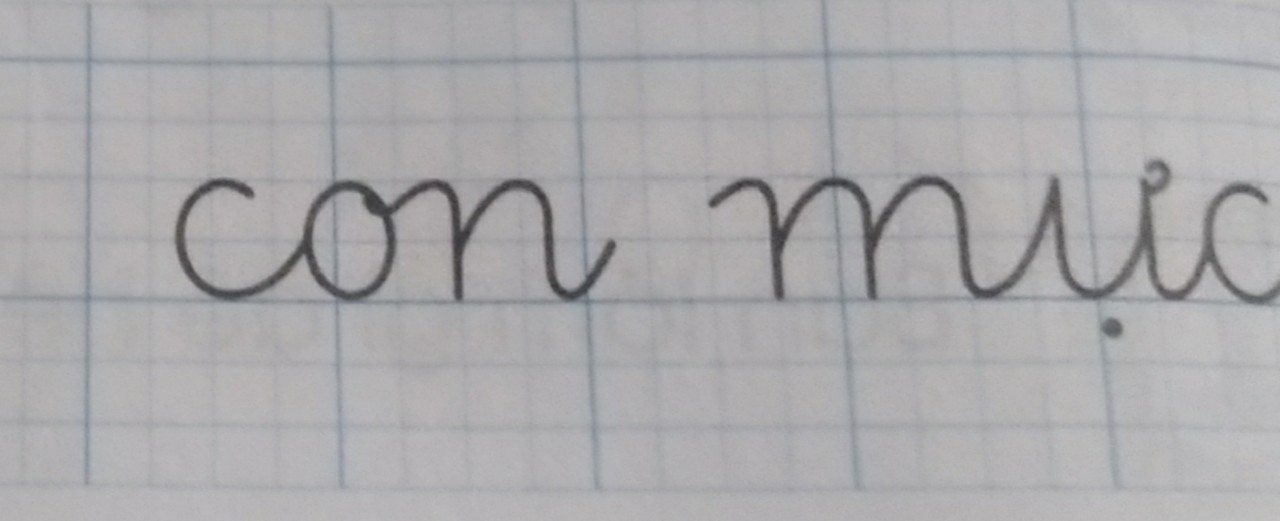 con mực